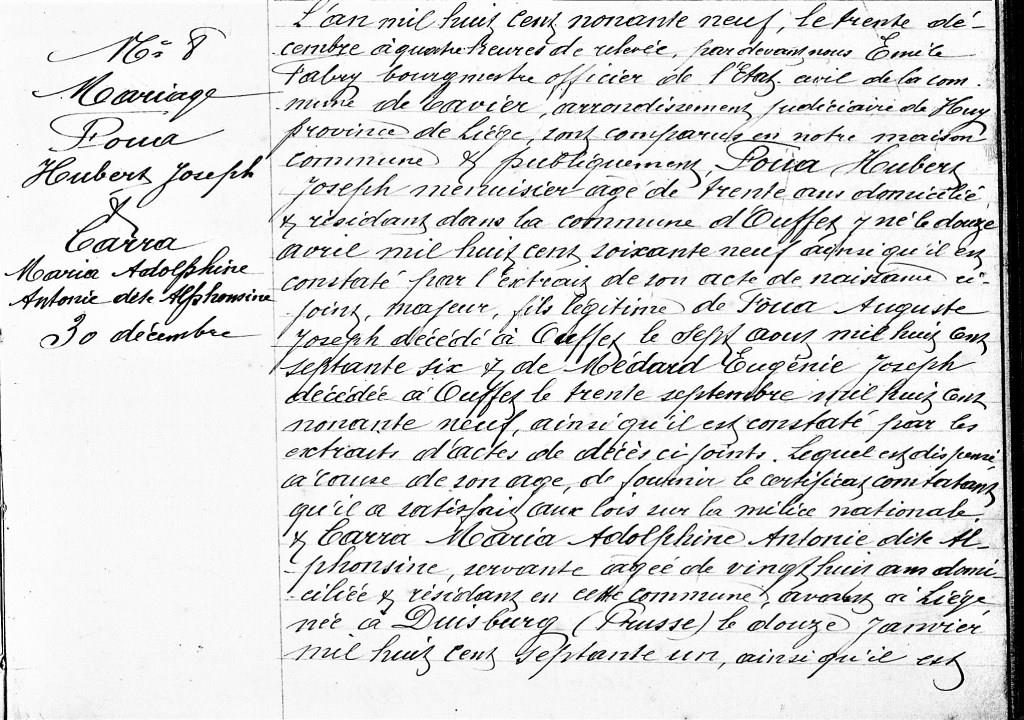 No 8
Mariage
Foua
Hubert Joseph
&
Carra
Maria Adolphine
Antonie dite Alphonsine
30 décembre
L'an mil huit cent nonante neuf, le trente dé-
cembre à quatre heures de relevée, par devant nous Emile
Fabry bourgmestre officier de l'Etat civil de la com
mune de Tavier, arrondissement judiciaire de Huy
province de Liége, sont comparus en notre maison
commune & publiquement, Foua Hubert
Joseph menuisier agé de trente ans domicilié
& résidant dans la commune d'Ouffet y né le douze
avril mil huit cent soixante neuf ainsi qu'il est
constaté par l'extrait de son acte de naissance ci-
joint, majeur, fils légitime de Foua Auguste
Joseph décédé à Ouffet le sept aout mil huit cent
septante six & de Médard Eugénie Joseph
décédée à Ouffet le trente septembre mil huit cent
nonante neuf, ainsi qu'il est constaté par les
extraits d'actes de décès ci joints. Lequel est dispensé
à cause de son age, de fournir le certificat constatant
qu'il a satisfait aux lois sur la milice nationale
& Carra Maria Adolphine Antonie dite Al-
phonsine, servante agée de vingt huit ans domi-
ciliée & résidant en cette commune, avant à Liége
née à Duisburg (Prusse) le douze Janvier
mil huit cent septante un, ainsi qu'il est